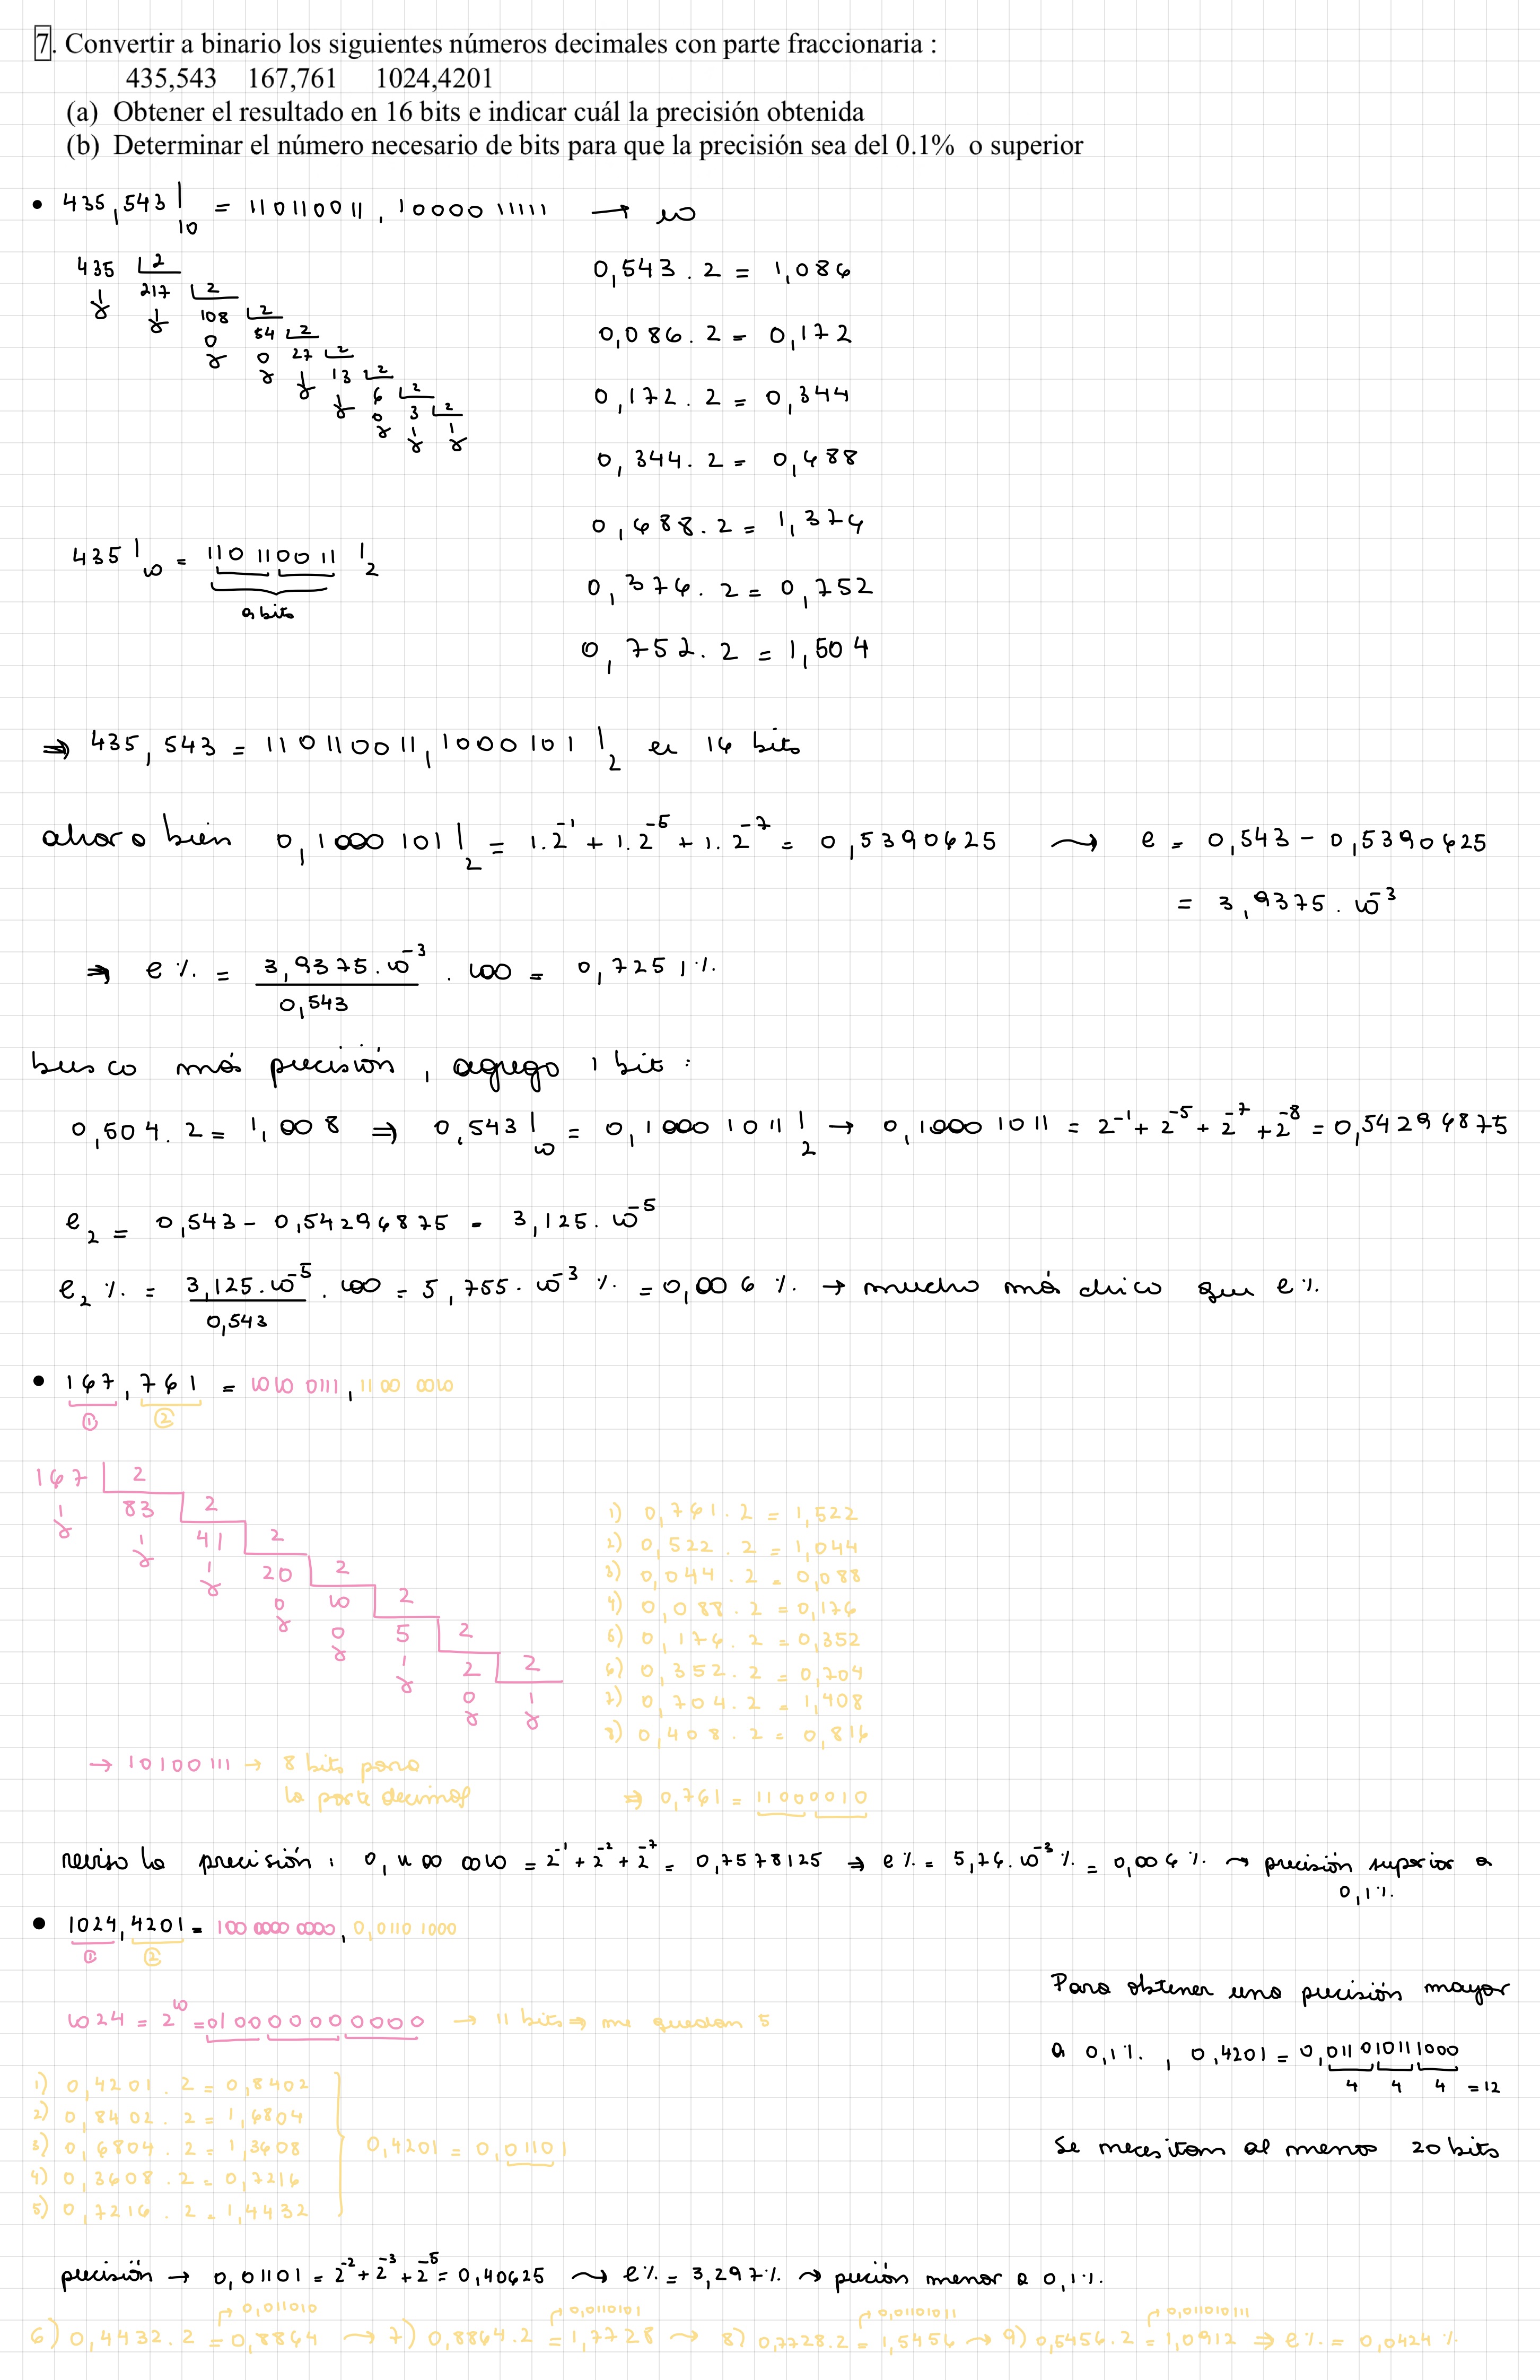 7. Convertir a binario los siguientes números decimales con parte fraccionaria :
435,543 167,761 1024,4201
(a) Obtener el resultado en 16 bits e indicar cuál la precisión obtenida
(b) Determinar el número necesario de bits para que la precisión sea del 0.1% o superior
• 435,543|10 = 110110011,10000 11111 → 10
435 |2
1 217 |2
1 108 |2
0 54 |2
0 27 |2
1 13 |2
1 6 |2
0 3 |2
1 1
0,543 . 2 = 1,086
0,086 . 2 = 0,172
0,172 . 2 = 0,344
0,344 . 2 = 0,688
0,688 . 2 = 1,376
0,376 . 2 = 0,752
0,752 . 2 = 1,504
435|10 = 110110011|2
9 bits
⇒ 435,543 = 110110011,1000101|2 en 16 bits
ahora bien 0,1000101|2 = 1.2^-1 + 1.2^-5 + 1.2^-7 = 0,5390625 ⤳ e = 0,543 - 0,5390625
= 3,9375 . 10^-3
⇒ e% = 3,9375.10^-3 / 0,543 . 100 = 0,7251%
busco más precisión, agrego 1 bit :
0,504 . 2 = 1,008 ⇒ 0,543|10 = 0,10001011|2 → 0,10001011 = 2^-1 + 2^-5 + 2^-7 + 2^-8 = 0,54296875
e2 = 0,543 - 0,54296875 = 3,125 . 10^-5
e2 % = 3,125.10^-5 / 0,543 . 100 = 5,755 . 10^-3 % = 0,006 % → mucho más chico que e%
• 167,761 = 1010 0111,1100 0010
① ②
167 | 2
1 83 | 2
1 41 | 2
1 20 | 2
0 10 | 2
0 5 | 2
1 2 | 2
0 1
→ 10100111 → 8 bits para
la parte decimal
1) 0,761 . 2 = 1,522
2) 0,522 . 2 = 1,044
3) 0,044 . 2 = 0,088
4) 0,088 . 2 = 0,176
5) 0,176 . 2 = 0,352
6) 0,352 . 2 = 0,704
7) 0,704 . 2 = 1,408
8) 0,408 . 2 = 0,816
⇒ 0,761 = 11000010
reviso la precisión : 0,1100 0010 = 2^-1 + 2^-2 + 2^-7 = 0,7578125 ⇒ e% = 5,76.10^-3 % = 0,006 % ⤳ precisión superior a
0,1%
• 1024,4201 = 100 0000 0000,0,0110 1000
① ②
1024 = 2^10 = 0100 0000 0000 → 11 bits ⇒ me quedan 5
1) 0,4201 . 2 = 0,8402
2) 0,8402 . 2 = 1,6804
3) 0,6804 . 2 = 1,3608
4) 0,3608 . 2 = 0,7216
5) 0,7216 . 2 = 1,4432
0,4201 = 0,01101
Para obtener una precisión mayor
a 0,1% , 0,4201 = 0,011010111000
4 4 4 = 12
Se necesitan al menos 20 bits
precisión → 0,01101 = 2^-2 + 2^-3 + 2^-5 = 0,40625 ⤳ e% = 3,297% ⤳ preción menor a 0,1%
0,011010 0,0110101 0,01101011 0,011010111
6) 0,4432 . 2 = 0,8864 → 7) 0,8864 . 2 = 1,7728 → 8) 0,7728 . 2 = 1,5456 → 9) 0,5456 . 2 = 1,0912 ⇒ e% = 0,0424 %